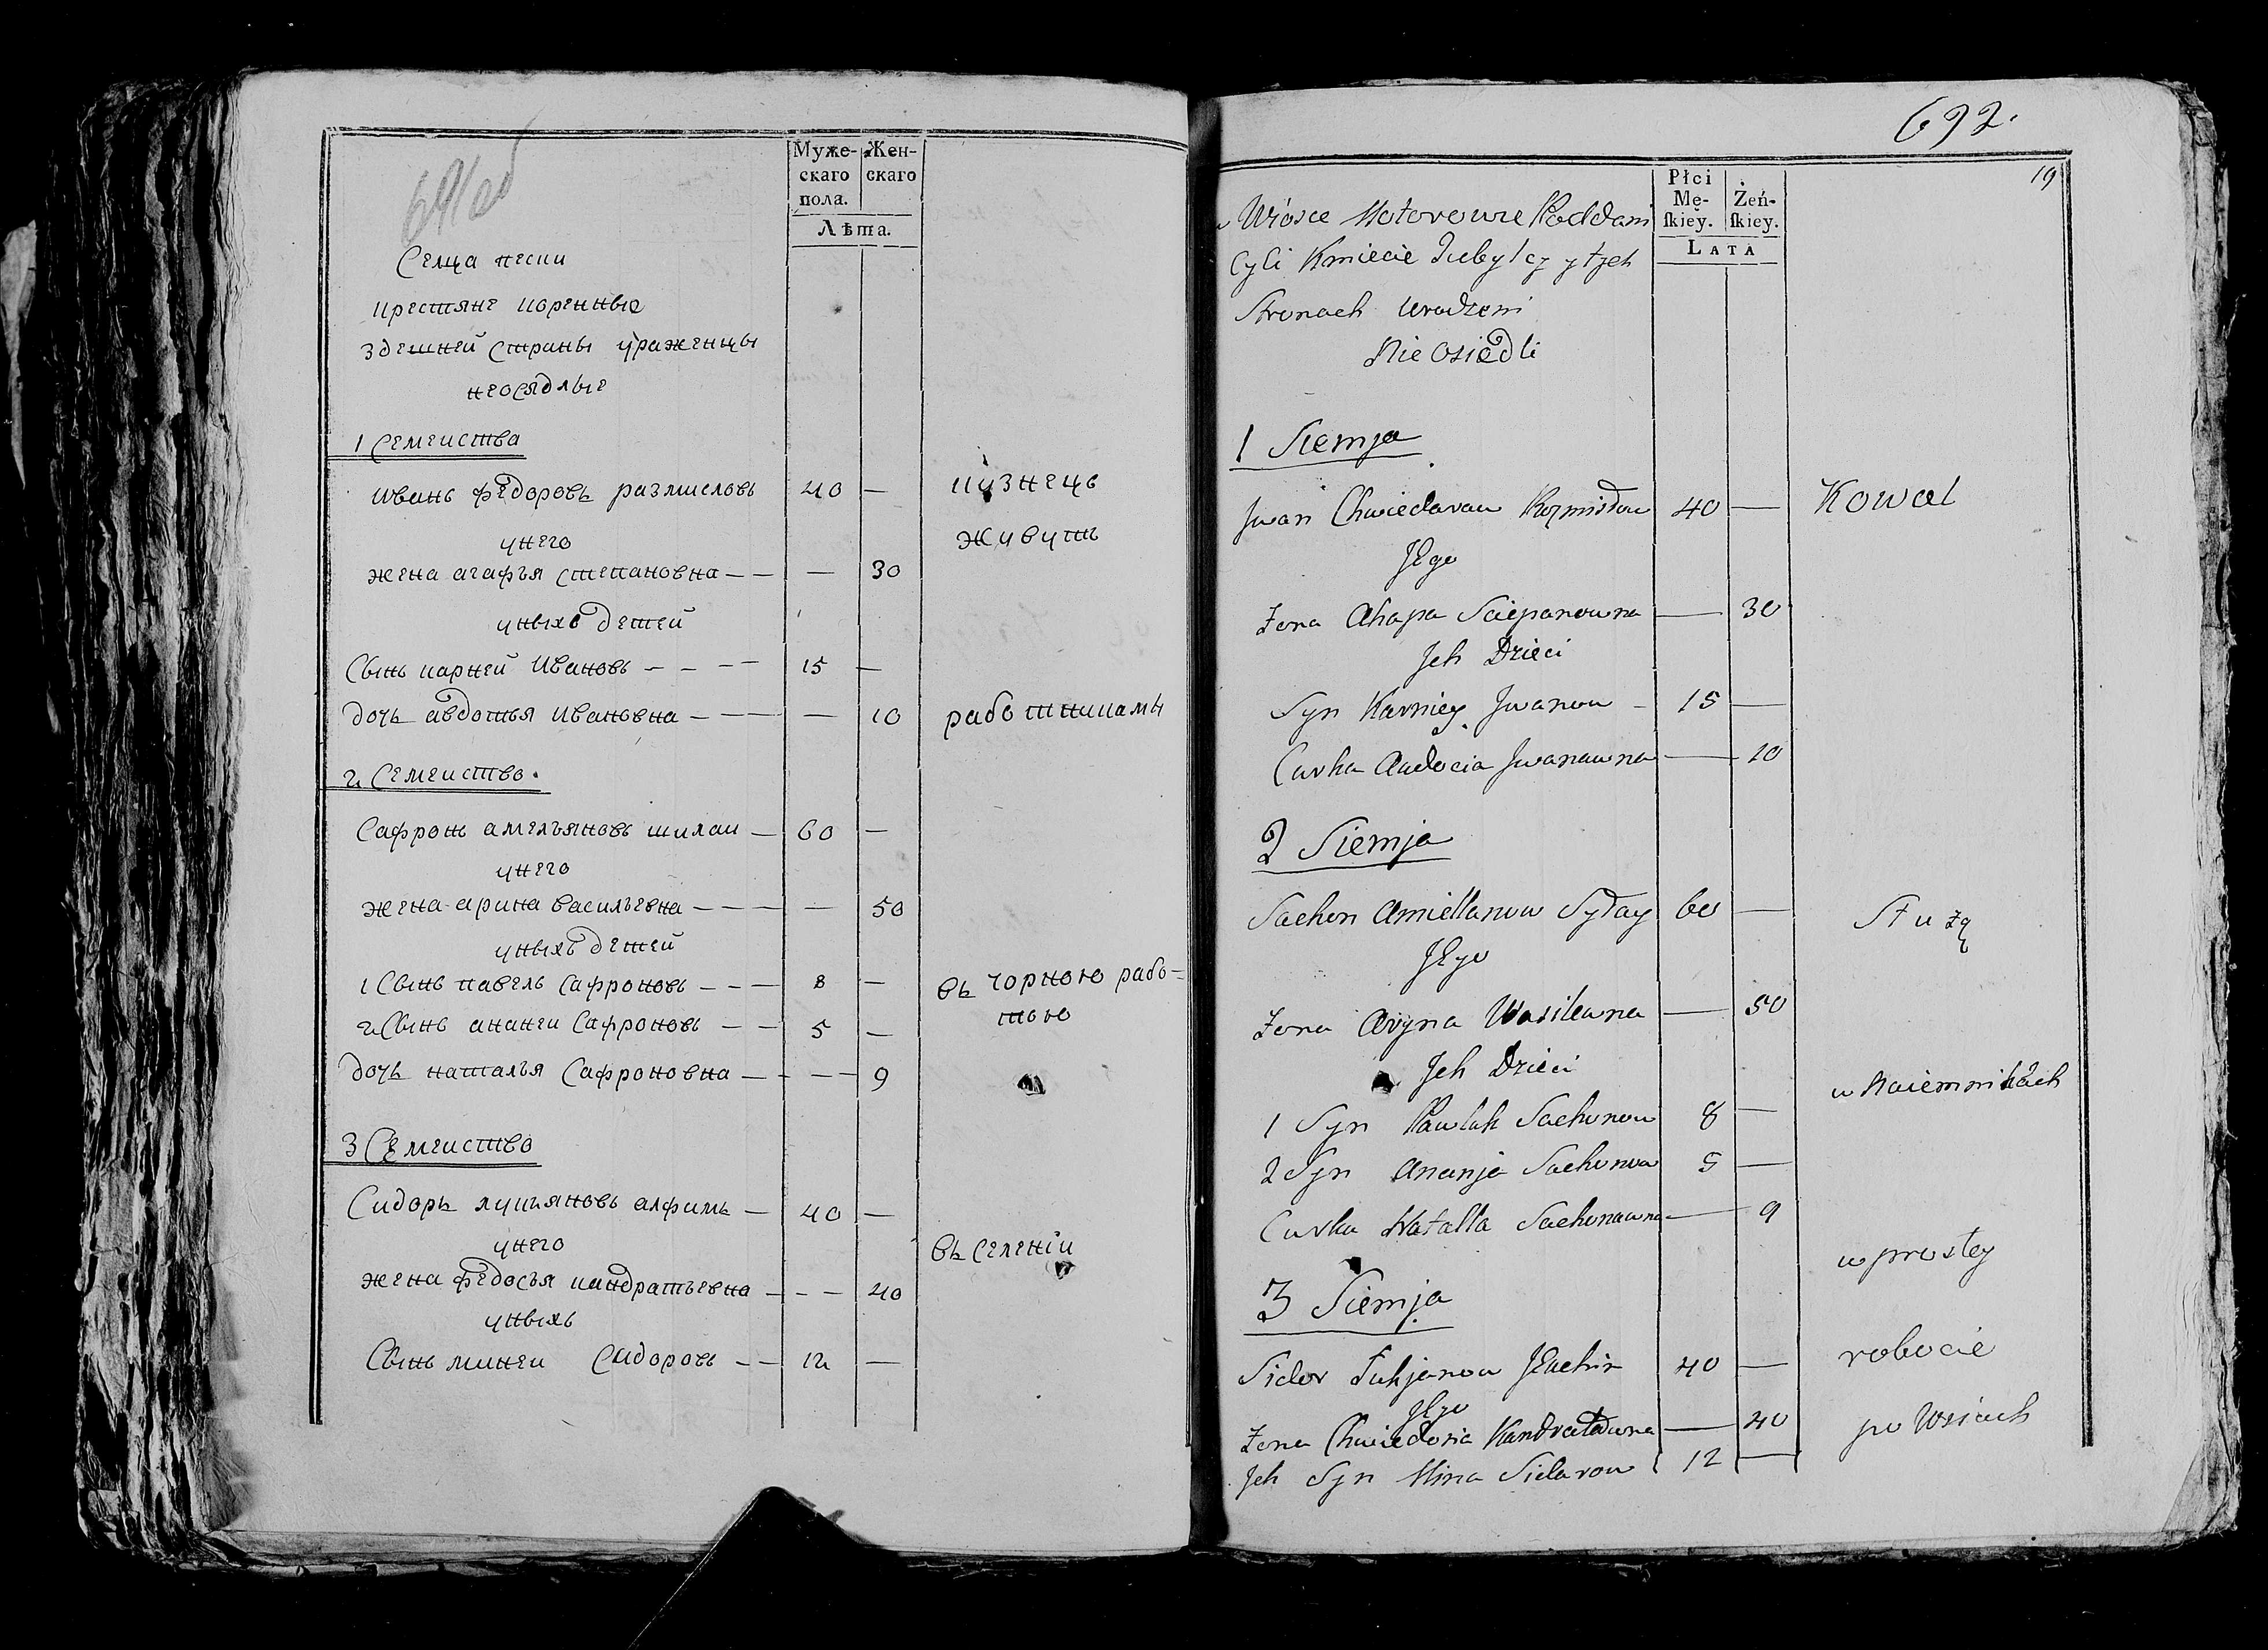 691 об
Муже-
скаго
пола.
Жен-
скаго
Лѣта.
Селца пески
крестяне коренные
Здешней страны ураженцы
неосядлые
1 Семеиства
иванъ федоровъ размисловъ 40 —
кузнецъ
унего
живутъ
жена агафъя степановна — — — 30
уныхъ детей
Сынъ карней Ивановъ — — — — 15 —
дочь авдотья ивановна — — — — 10
работниками
2 Семеиство.
Сафронъ амелъяновъ шилаи — 60 —
унего
жена арина василъевна — — — — 50
уныхъ детей
1 Сынъ павелъ Сафроновъ — — — 8 —
въ чорною рабо-
2 Сынъ ананеи Сафроновъ — — 5 —
тою
дочь наталъя Сафроновна — — — 9
3 Семеиство
Сидоръ лукъяновъ алфимъ — 40 —
унего
въ Селеніи
жена федосъя кандратъевна — — — 40
уныхъ
Сынъ минеи Сидоровъ — — 12 —
692.
19
Płci
Mę-
ſkiey.
Żeń-
ſkiey.
LATA
w Wiosce Poddani
Cyli Kmiecie y tych
Stronach Urodzeni
Nie Osiedli
1 Siemja
Jwan Chwiedarau Rozmisłou 40 —
Kowal
JEgo
Zona Ahapa Sciepanowna — 30
Jch Dzieci
Syn Karniey Jwanou - 15 —
Curka Audocia Jwanauna — 10
2 Siemja
Sachon Amiellanou Syłay 60 —
Słuzą
JEgo
Zona Aryna Wasilewna — 50
Jch Dzieci
w Naiemnikach
1 Syn Pawluk Sachonou 8 —
2 Syn Ananja Sachonou 5 —
Curka Natalla Sachonauna — 9
w prostey
3 Siemja
robocie
Sidor Łukjanou JEachim 40 —
JEgo
Zona Chwiedosia Kandratouna — 40
po Wsiach
Jch Syn Mina Sidarou 12 —